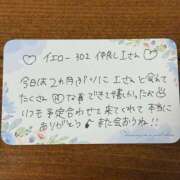 イエロー302 仲良しIさん
今日は2ヵ月ぶりに Iさんと会えて
たくさん 話できて嬉しかった
いつも予定合わせて来てくれて 本当に
ありがとう♪ また会おうね!!